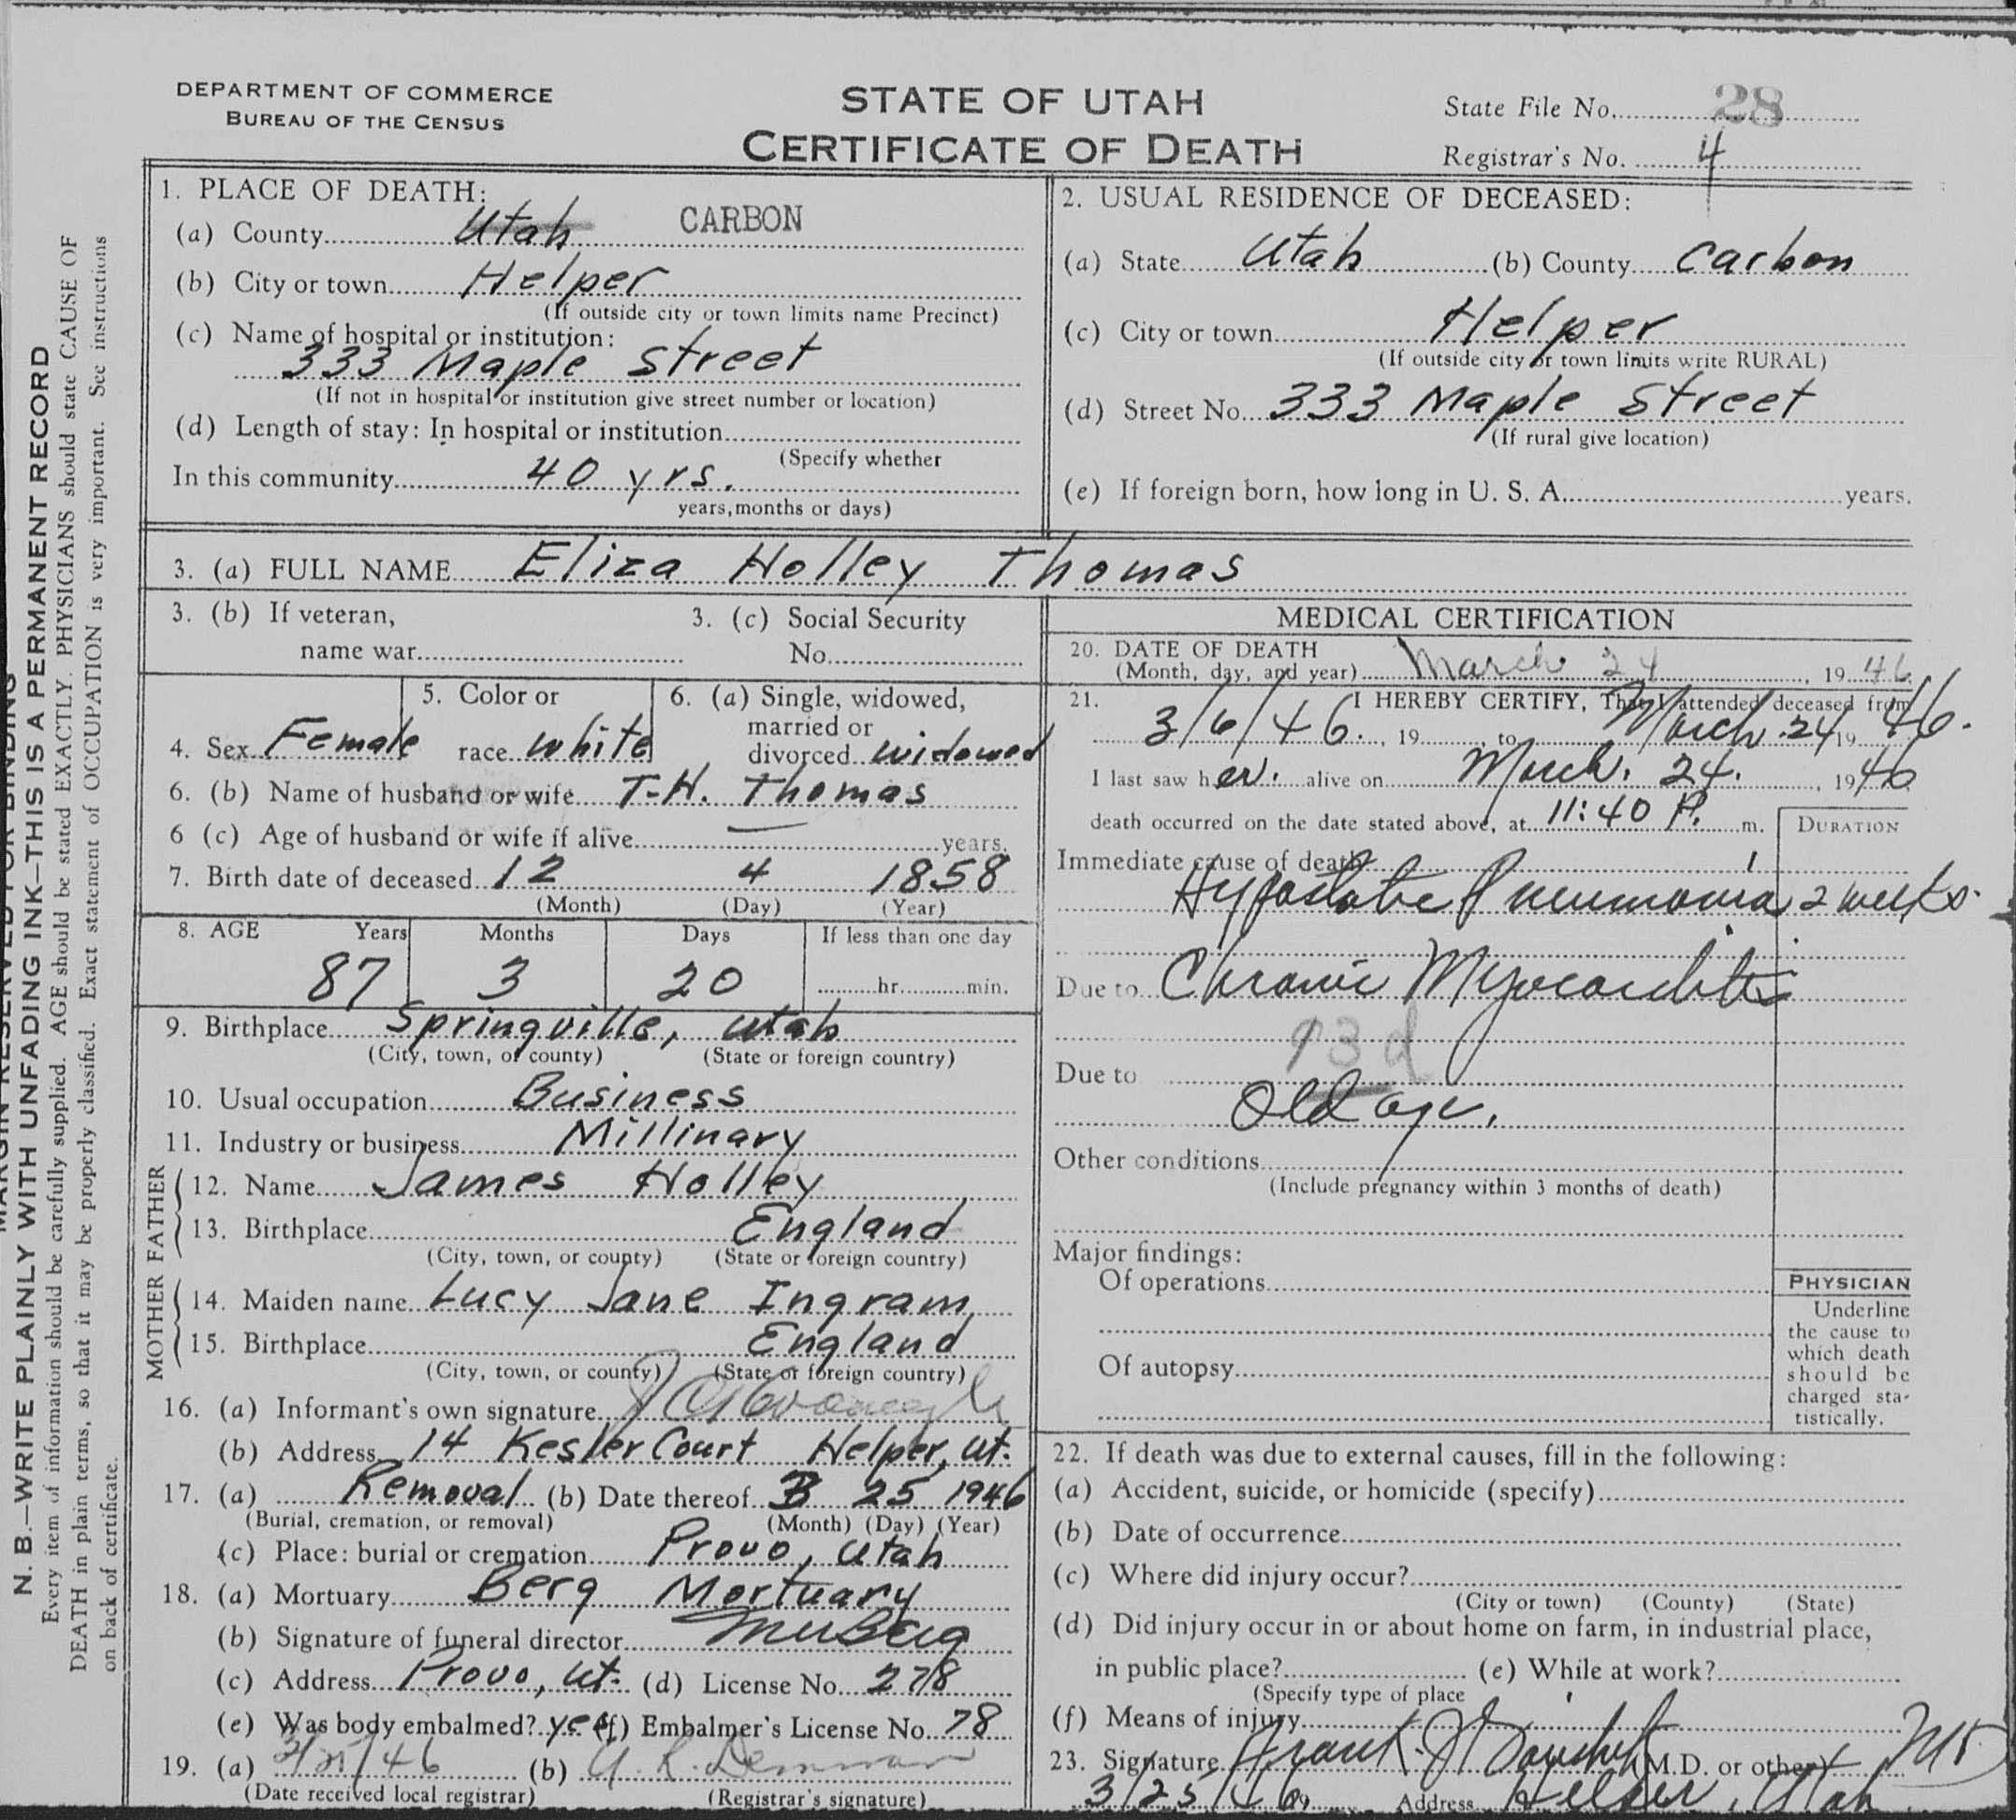 DEPARTMENT OF COMMERCE
BUREAU OF THE CENSUS
STATE OF UTAH
CERTIFICATE OF DEATH
State File No. 28
Registrar's No. 4
1. PLACE OF DEATH:
(a) County Utah CARBON
(b) City or town Helper
(If outside city or town limits name Precinct)
(c) Name of hospital or institution:
333 Maple Street
(If not in hospital or institution give street number or location)
(d) Length of stay: In hospital or institution
(Specify whether
In this community 40 yrs.
years, months or days)
2. USUAL RESIDENCE OF DECEASED:
(a) State Utah (b) County Carbon
(c) City or town Helper
(If outside city or town limits write RURAL)
(d) Street No. 333 Maple Street
(If rural give location)
(e) If foreign born, how long in U. S. A. years.
3. (a) FULL NAME Eliza Holley Thomas
3. (b) If veteran,
name war
3. (c) Social Security
No.
4. Sex Female
5. Color or
race White
6. (a) Single, widowed,
married or
divorced Widowed
6. (b) Name of husband or wife T.H. Thomas
6 (c) Age of husband or wife if alive — years.
7. Birth date of deceased 12 4 1858
(Month) (Day) (Year)
8. AGE Years Months Days If less than one day
87 3 20 hr. min.
9. Birthplace Springville, Utah
(City, town, or county) (State or foreign country)
10. Usual occupation Business
11. Industry or business Millinary
FATHER
12. Name James Holley
13. Birthplace England
(City, town, or county) (State or foreign country)
MOTHER
14. Maiden name Lucy Jane Ingram
15. Birthplace England
(City, town, or county) (State or foreign country)
16. (a) Informant's own signature
(b) Address 14 Kesler Court Helper, Ut.
17. (a) Removal (b) Date thereof 3 25 1946
(Burial, cremation, or removal) (Month) (Day) (Year)
(c) Place: burial or cremation Provo, Utah
18. (a) Mortuary Berg Mortuary
(b) Signature of funeral director Berg
(c) Address Provo, Ut. (d) License No. 278
(e) Was body embalmed? yes (f) Embalmer's License No. 78
19. (a) 3/25/46 (b)
(Date received local registrar) (Registrar's signature)
MEDICAL CERTIFICATION
20. DATE OF DEATH
(Month, day, and year) March 24, 1946
21. I HEREBY CERTIFY, That I attended deceased from
3/6/46, 19 to March 24 19 46.
I last saw her. alive on March. 24. , 1946
death occurred on the date stated above, at 11:40 P. m.
DURATION
Immediate cause of death
Hypostatic Pneumonia 2 weeks.
Due to Chronic Myocarditis
93d
Due to
Old age.
Other conditions
(Include pregnancy within 3 months of death)
Major findings:
Of operations
Of autopsy
PHYSICIAN
Underline
the cause to
which death
should be
charged sta-
tistically.
22. If death was due to external causes, fill in the following:
(a) Accident, suicide, or homicide (specify)
(b) Date of occurrence
(c) Where did injury occur?
(City or town) (County) (State)
(d) Did injury occur in or about home on farm, in industrial place,
in public place? (e) While at work?
(Specify type of place
(f) Means of injury
23. Signature Frank J. (M.D. or other) MD
3/25/46 19 Address Helper, Utah
MARGIN RESERVED FOR BINDING
N. B.—WRITE PLAINLY WITH UNFADING INK—THIS IS A PERMANENT RECORD
Every item of information should be carefully supplied. AGE should be stated EXACTLY. PHYSICIANS should state CAUSE OF
DEATH in plain terms, so that it may be properly classified. Exact statement of OCCUPATION is very important. See instructions
on back of certificate.